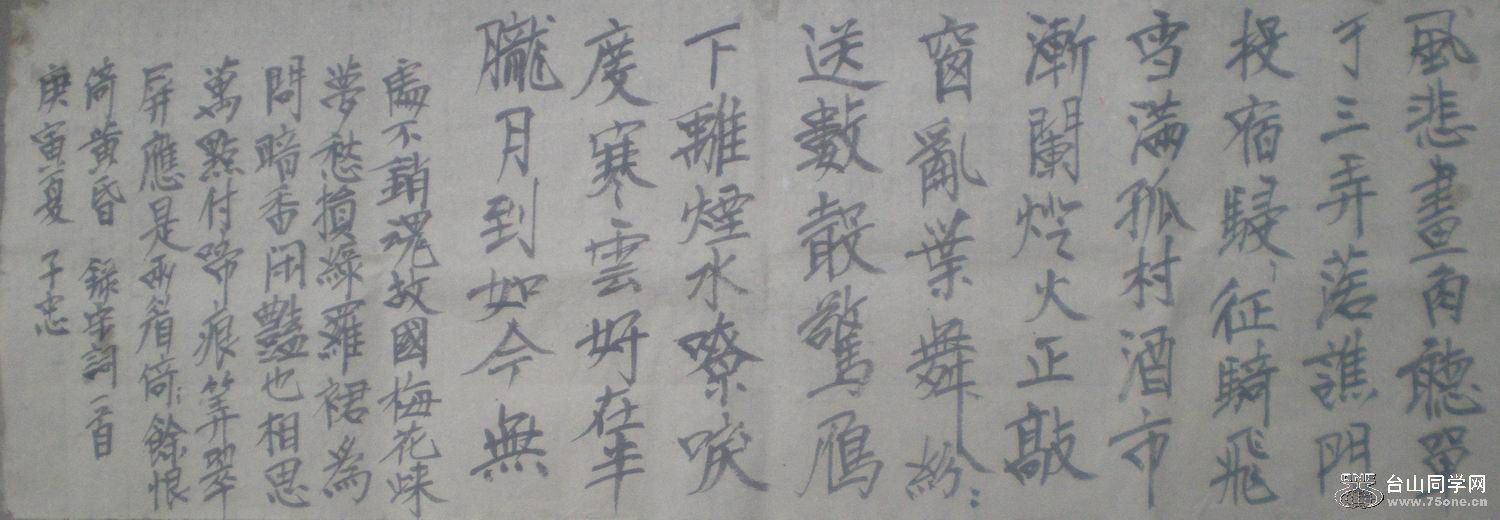 風悲畫角聽單
于三弄落譙門
投宿駸、征騎飛
雪滿孤村酒市
漸闌燈火正敲
窗亂葉舞紛:
送數聲驚鴈
下離煙水嘹唳
度寒雲好在半
朧月到如今無
處不銷魂故國梅花歸
夢愁損綠羅裙為
問暗香閑艷也相思
萬點付啼痕算翠
屏應是兩眉倚:餘恨
倚黃昏 錄宋詞一首
庚寅夏 子忠
台山同学网
www.75one.cn